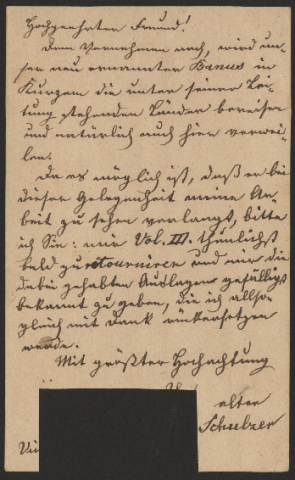 Hochgeehrter Freund!
Dem Vernehmen nach, wird un-
ser neu ernannter Banus in
Kurzem die unter seiner Lei-
tung stehenden Länder bereisen
und natürlich auch hier verwei-
len.
Da es möglich ist, daß er bei
dieser Gelegenheit meine Ar-
beit zu sehen verlangt, bitte
ich Sie: mir Vol. III. thunlichst
bald zu retourniren und mir die
dabei gehabten Auslagen gefälligst
bekannt zu geben, die ich allso-
gleich mit Dank rückersetzen
werde.
Mit größter Hochachtung
alter
Schulzer